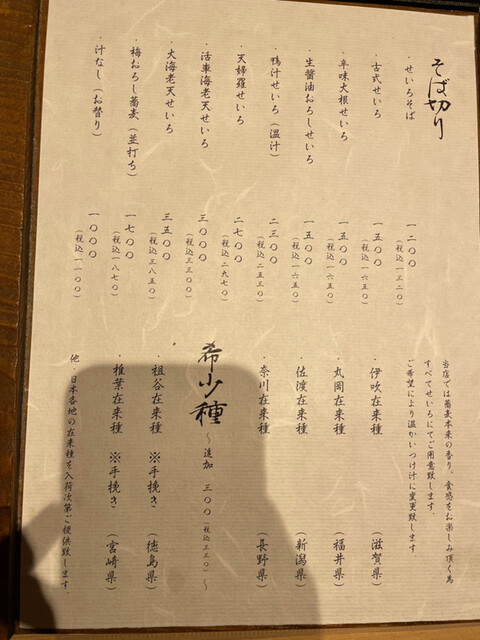 そば切り
・せいろそば 一二〇〇（税込一三二〇）
・古式せいろ 一五〇〇（税込一六五〇）
・辛味大根せいろ 一五〇〇（税込一六五〇）
・生醤油おろしせいろ 一五〇〇（税込一六五〇）
・鴨汁せいろ（温汁） 二三〇〇（税込二五三〇）
・天婦羅せいろ 二七〇〇（税込二九七〇）
・活車海老天せいろ 三〇〇〇（税込三三〇〇）
・大海老天せいろ 三五〇〇（税込三八五〇）
・梅おろし蕎麦（並打ち） 一七〇〇（税込一八七〇）
・汁なし（お替り） 一〇〇〇（税込一一〇〇）
当店では蕎麦本来の香り、食感をお楽しみ頂く為
すべてせいろにてご用意致します。
ご希望により温かいつけ汁に変更致します
・伊吹在来種（滋賀県）
・丸岡在来種（福井県）
・佐渡在来種（新潟県）
・奈川在来種（長野県）
希少種 ～追加 三〇〇（税込三三〇）～
・祖谷在来種 ※手挽き（徳島県）
・椎葉在来種 ※手挽き（宮崎県）
他・日本各地の在来種を入荷次第ご提供致します。